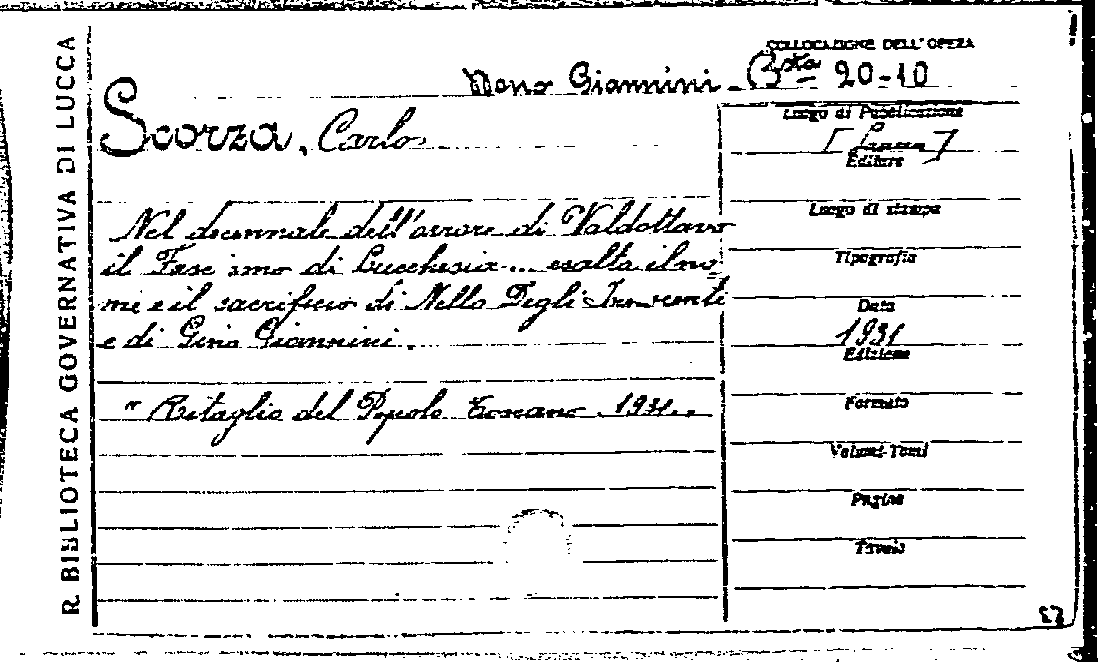 R. BIBLIOTECA GOVERNATIVA DI LUCCA
COLLOCAZIONE DELL'OPERA
Giannini - Bta 20-10
Scorza, Carlo
Luogo di Pubblicazione
[Lucca]
Editore
Nel decennale dell'orrore di Valdottavo
il Fascismo di Lucchesia... esalta il no
mi e il sacrificio di Nello Degli Innocenti
e di Gino Giannini.
Luogo di stampa
Tipografia
Data
1931
Edizione
"Ritaglio del Popolo Toscano 1931".
Formato
Volumi-Tomi
Pagine
Tavole